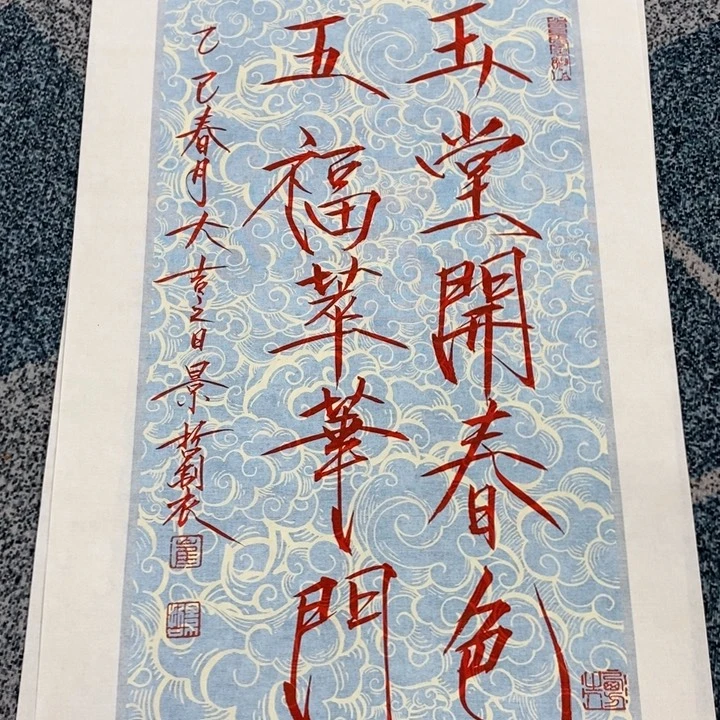 玉堂開春色
五福萃華門
乙巳春月大吉之日景